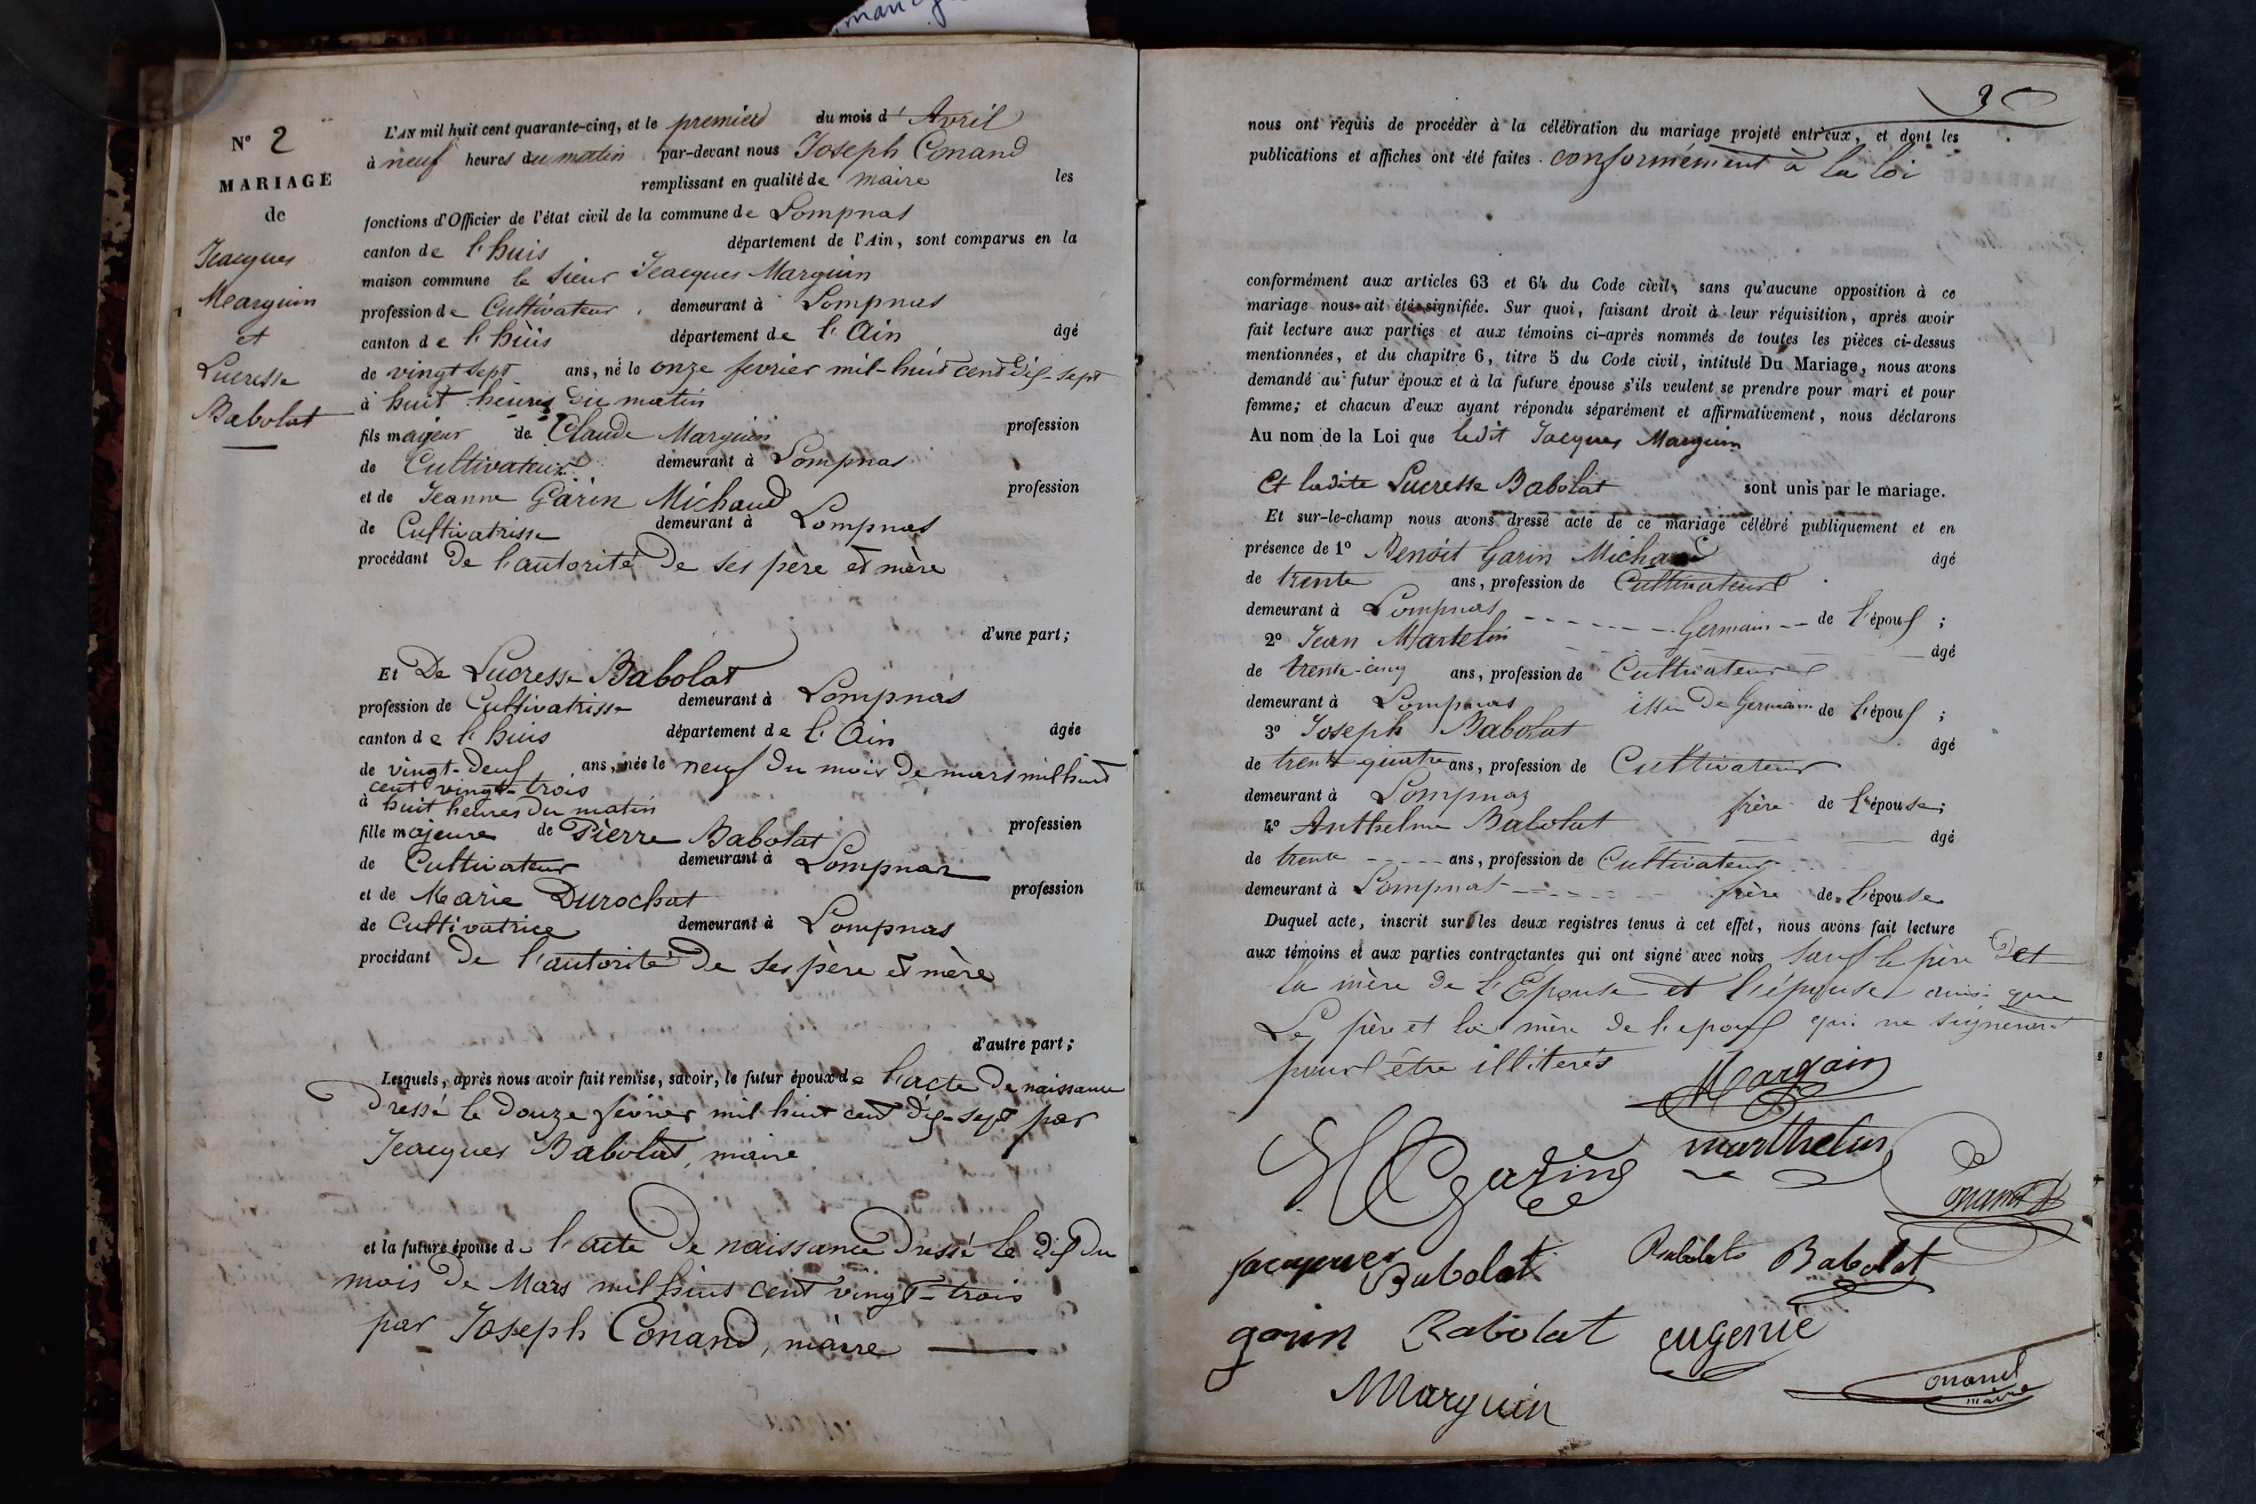 N° 2
MARIAGE
de
Jacques
Marguin
et
Lucresse
Babolat
L'AN mil huit cent quarante-cinq, et le premier du mois d'Avril
à neuf heures du matin par-devant nous Joseph Conand
remplissant en qualité de maire les
fonctions d'Officier de l'état civil de la commune de Lompnas
canton de l'huis département de l'Ain, sont comparus en la
maison commune le Sieur Jacques Marguin
profession de Cultivateur demeurant à Lompnas
canton de l'huis département de l'Ain âgé
de vingt sept ans, né le onze fevrier mil-huit cent dix-sept
à huit heures du matin
fils majeur de Claude Marguin profession
de Cultivateur demeurant à Lompnas
et de Jeanne Garin Michaud profession
de Cultivatrisse demeurant à Lompnas
procédant de l'autorité de ses père et mère
d'une part;
Et De Lucresse Babolat
profession de Cultivatrisse demeurant à Lompnas
canton de l'huis département de l'Ain âgée
de vingt-deux ans, née le neuf du mois de mars mil huit
cent vingt-trois
à huit heures du matin
fille majeure de Pierre Babolat profession
de Cultivateur demeurant à Lompnas
et de Marie Durochat profession
de Cultivatrice demeurant à Lompnas
procédant de l'autorité de ses père et mère
d'autre part;
Lesquels, après nous avoir fait remise, savoir, le futur époux de l'acte de naissance
dressé le douze fevrier mil huit cent dix-sept par
Jacques Babolat, maire
et la future épouse de l'acte de naissance dressé le dix du
mois de Mars mil huit cent vingt-trois
par Joseph Conand, maire
nous ont requis de procéder à la célébration du mariage projeté entr'eux, et dont les
publications et affiches ont été faites conformément à la loi
conformément aux articles 63 et 64 du Code civil, sans qu'aucune opposition à ce
mariage nous ait été signifiée. Sur quoi, faisant droit à leur réquisition, après avoir
fait lecture aux parties et aux témoins ci-après nommés de toutes les pièces ci-dessus
mentionnées, et du chapitre 6, titre 5 du Code civil, intitulé Du Mariage, nous avons
demandé au futur époux et à la future épouse s'ils veulent se prendre pour mari et pour
femme; et chacun d'eux ayant répondu séparément et affirmativement, nous déclarons
Au nom de la Loi que ledit Jacques Marguin
Et ladite Lucresse Babolat sont unis par le mariage.
Et sur-le-champ nous avons dressé acte de ce mariage célébré publiquement et en
présence de 1° Benoit Garin Michaud âgé
de trente ans, profession de Cultivateur
demeurant à Lompnas Germain de l'époux;
2° Jean Martelin âgé
de trente-cinq ans, profession de Cultivateur
demeurant à Lompnas issu De Germain de l'époux;
3° Joseph Babolat âgé
de trente quatre ans, profession de Cultivateur
demeurant à Lompnas frère de l'épouse;
4° Anthelme Babolat âgé
de trente ans, profession de Cultivateur
demeurant à Lompnas frère de l'épouse
Duquel acte, inscrit sur les deux registres tenus à cet effet, nous avons fait lecture
aux témoins et aux parties contractantes qui ont signé avec nous sauf le père et
la mère de l'Epouse et l'épouse ainsi que
Le père et la mère de l'epoux qui ne signeront
pour être illiterés
Marguin
Garin
marthelin
Conand
jacques Babolat
Babolat
garin Babolat eugenie
Conand
maire
Marguin